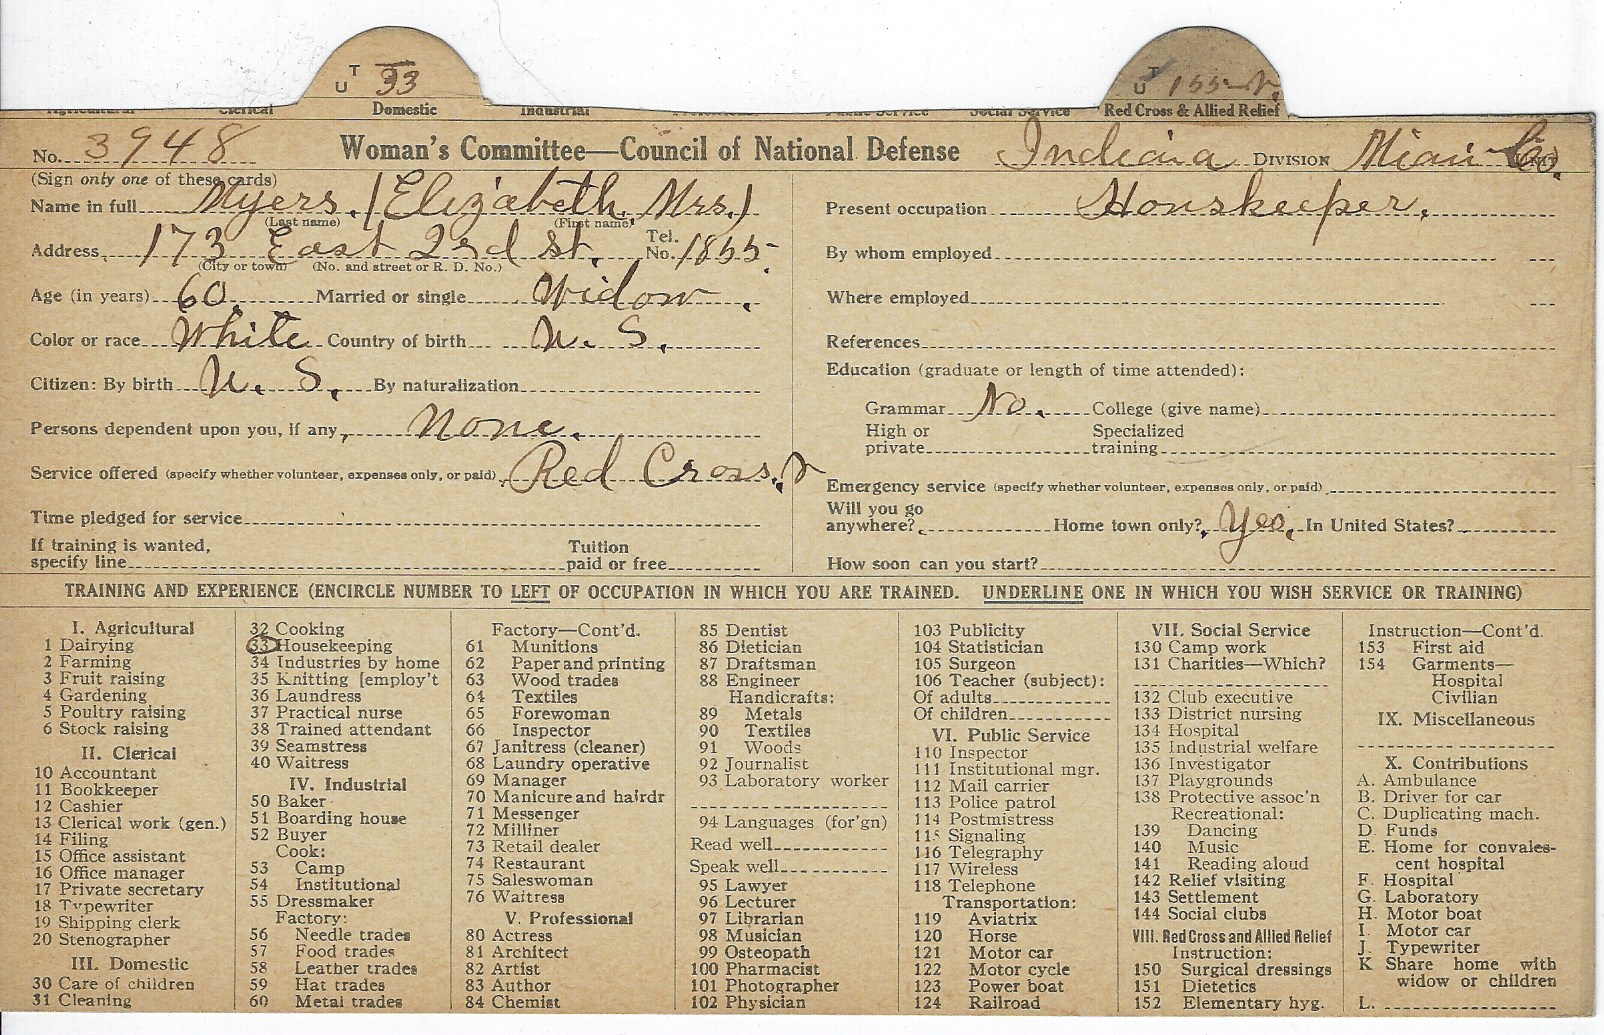 T
U 33
T
U 155-V.
Clerical Domestic Industrial Social Service Red Cross & Allied Relief
No. 3948 Woman's Committee—Council of National Defense Indiana DIVISION Miami Co. UNIT
(Sign only one of these cards)
Name in full Myers. (Elizabeth. Mrs.)
(Last name) (First name)
Address 173 East 2nd St. Tel. No. 1855
(City or town) (No. and street or R. D. No.)
Age (in years) 60. Married or single Widow.
Color or race White Country of birth U. S.
Citizen: By birth U. S. By naturalization
Persons dependent upon you, if any, None.
Service offered (specify whether volunteer, expenses only, or paid) Red Cross. V
Time pledged for service
If training is wanted, specify line Tuition paid or free
Present occupation Houskeeper.
By whom employed
Where employed
References
Education (graduate or length of time attended):
Grammar No. College (give name)
High or private Specialized training
Emergency service (specify whether volunteer, expenses only, or paid)
Will you go anywhere? Home town only? Yes. In United States?
How soon can you start?
TRAINING AND EXPERIENCE (ENCIRCLE NUMBER TO LEFT OF OCCUPATION IN WHICH YOU ARE TRAINED. UNDERLINE ONE IN WHICH YOU WISH SERVICE OR TRAINING)
I. Agricultural
1 Dairying
2 Farming
3 Fruit raising
4 Gardening
5 Poultry raising
6 Stock raising
II. Clerical
10 Accountant
11 Bookkeeper
12 Cashier
13 Clerical work (gen.)
14 Filing
15 Office assistant
16 Office manager
17 Private secretary
18 Typewriter
19 Shipping clerk
20 Stenographer
III. Domestic
30 Care of children
31 Cleaning
32 Cooking
33 Housekeeping
34 Industries by home
35 Knitting [employ't
36 Laundress
37 Practical nurse
38 Trained attendant
39 Seamstress
40 Waitress
IV. Industrial
50 Baker
51 Boarding house
52 Buyer
Cook:
53 Camp
54 Institutional
55 Dressmaker
Factory:
56 Needle trades
57 Food trades
58 Leather trades
59 Hat trades
60 Metal trades
Factory—Cont'd.
61 Munitions
62 Paper and printing
63 Wood trades
64 Textiles
65 Forewoman
66 Inspector
67 Janitress (cleaner)
68 Laundry operative
69 Manager
70 Manicure and hairdr
71 Messenger
72 Milliner
73 Retail dealer
74 Restaurant
75 Saleswoman
76 Waitress
V. Professional
80 Actress
81 Architect
82 Artist
83 Author
84 Chemist
85 Dentist
86 Dietician
87 Draftsman
88 Engineer
Handicrafts:
89 Metals
90 Textiles
91 Woods
92 Journalist
93 Laboratory worker
94 Languages (for'gn)
Read well
Speak well
95 Lawyer
96 Lecturer
97 Librarian
98 Musician
99 Osteopath
100 Pharmacist
101 Photographer
102 Physician
103 Publicity
104 Statistician
105 Surgeon
106 Teacher (subject):
Of adults
Of children
VI. Public Service
110 Inspector
111 Institutional mgr.
112 Mail carrier
113 Police patrol
114 Postmistress
115 Signaling
116 Telegraphy
117 Wireless
118 Telephone
Transportation:
119 Aviatrix
120 Horse
121 Motor car
122 Motor cycle
123 Power boat
124 Railroad
VII. Social Service
130 Camp work
131 Charities—Which?
132 Club executive
133 District nursing
134 Hospital
135 Industrial welfare
136 Investigator
137 Playgrounds
138 Protective assoc'n
Recreational:
139 Dancing
140 Music
141 Reading aloud
142 Relief visiting
143 Settlement
144 Social clubs
VIII. Red Cross and Allied Relief
Instruction:
150 Surgical dressings
151 Dietetics
152 Elementary hyg.
Instruction—Cont'd.
153 First aid
154 Garments—
Hospital
Civilian
IX. Miscellaneous
X. Contributions
A. Ambulance
B. Driver for car
C. Duplicating mach.
D. Funds
E. Home for convales-
cent hospital
F. Hospital
G. Laboratory
H. Motor boat
I. Motor car
J. Typewriter
K Share home with
widow or children
L.